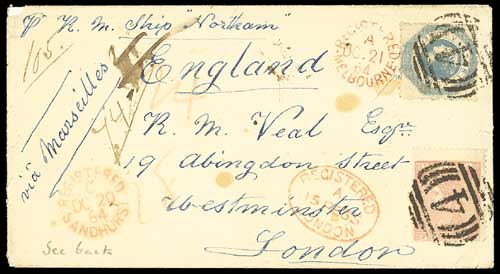 p R. M. Ship "Northam"
105.
via Marseilles
England
R. M. Veal Esqre.
19 Abingdon Street
Westminster
London
REGISTERED
A
OC 21
64
MELBOURNE
REGISTERED
C
OC 20
64
SANDHURST
REGISTERED
A
LONDON
See back